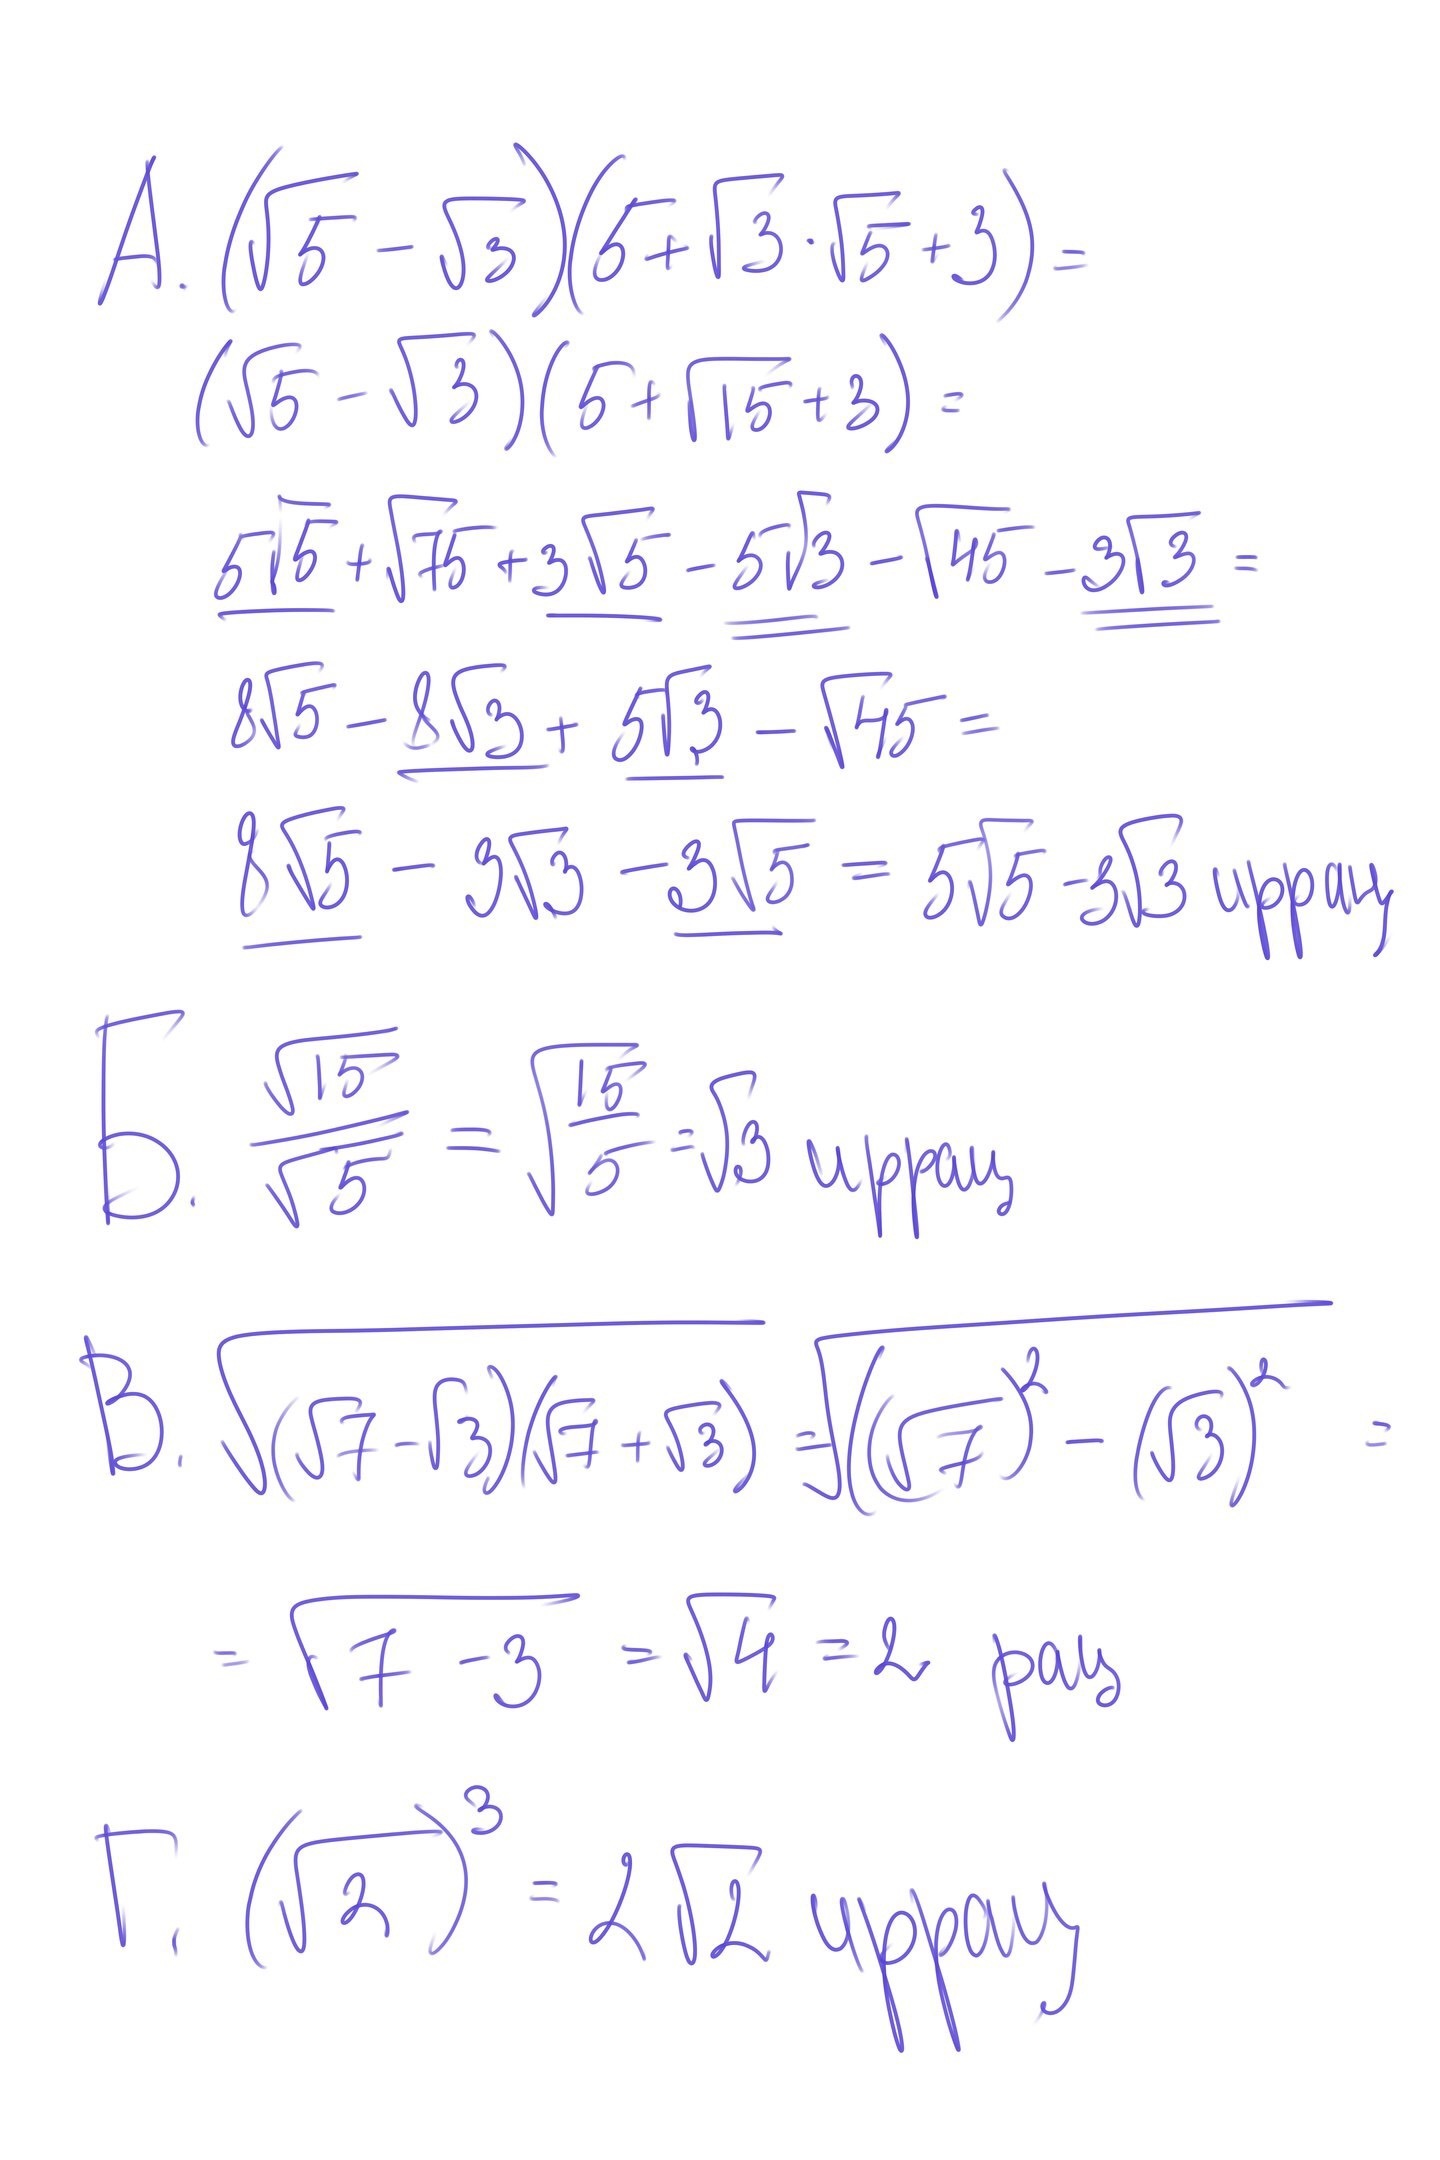 А. (√5 − √3)(5 + √3 · √5 + 3) =
(√5 − √3)(5 + √15 + 3) =
5√5 + √75 + 3√5 − 5√3 − √45 − 3√3 =
8√5 − 8√3 + 5√3 − √45 =
8√5 − 3√3 − 3√5 = 5√5 − 3√3 иррац
Б. √15/√5 = √(15/5) = √3 иррац
В. √((√7 − √3)(√7 + √3)) = √((√7)² − (√3)² =
= √(7 − 3) = √4 = 2 рац
Г. (√2)³ = 2√2 иррац